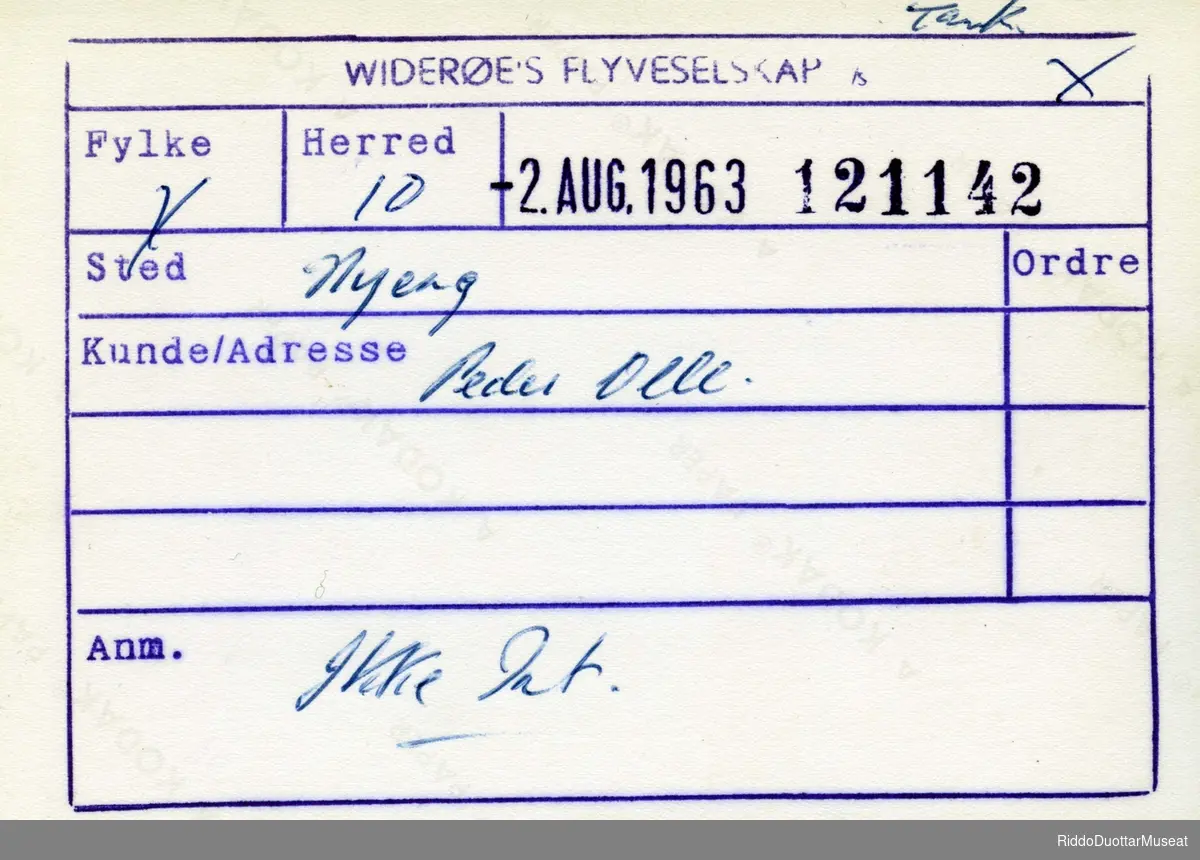 Tank.
WIDERØE'S FLYVESELSKAP A/S X
Fylke Herred
Y 10 -2. AUG. 1963 121142
Sted Nyeng Ordre
Kunde/Adresse Peder Olle.
Anm. Ikke Int.
RiddoDuottarMuseat